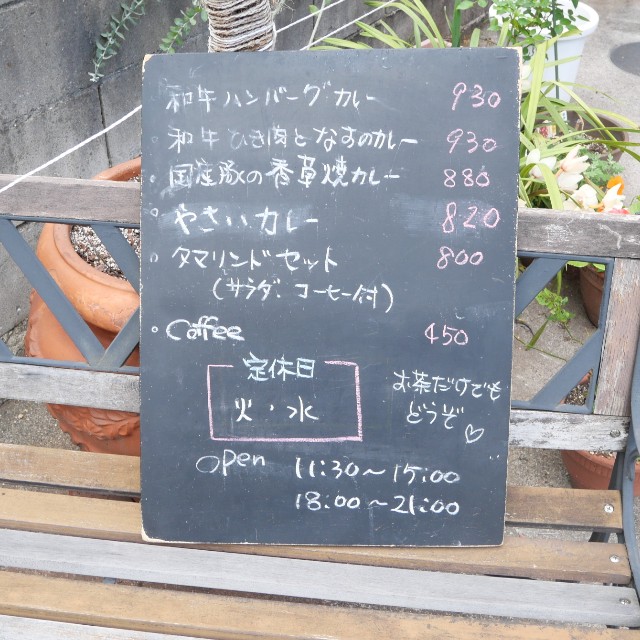 和牛ハンバーグカレー 930
和牛ひき肉となすのカレー 930
国産豚の香草焼カレー 880
やさいカレー 820
タマリンドセット 800
(サラダ、コーヒー付)
Coffee 450
定休日
火・水
お茶だけでも
どうぞ♡
Open 11:30～15:00
18:00～21:00